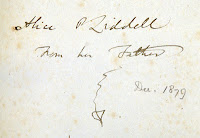 Alice P Liddell
From her Father
Dec. 1879